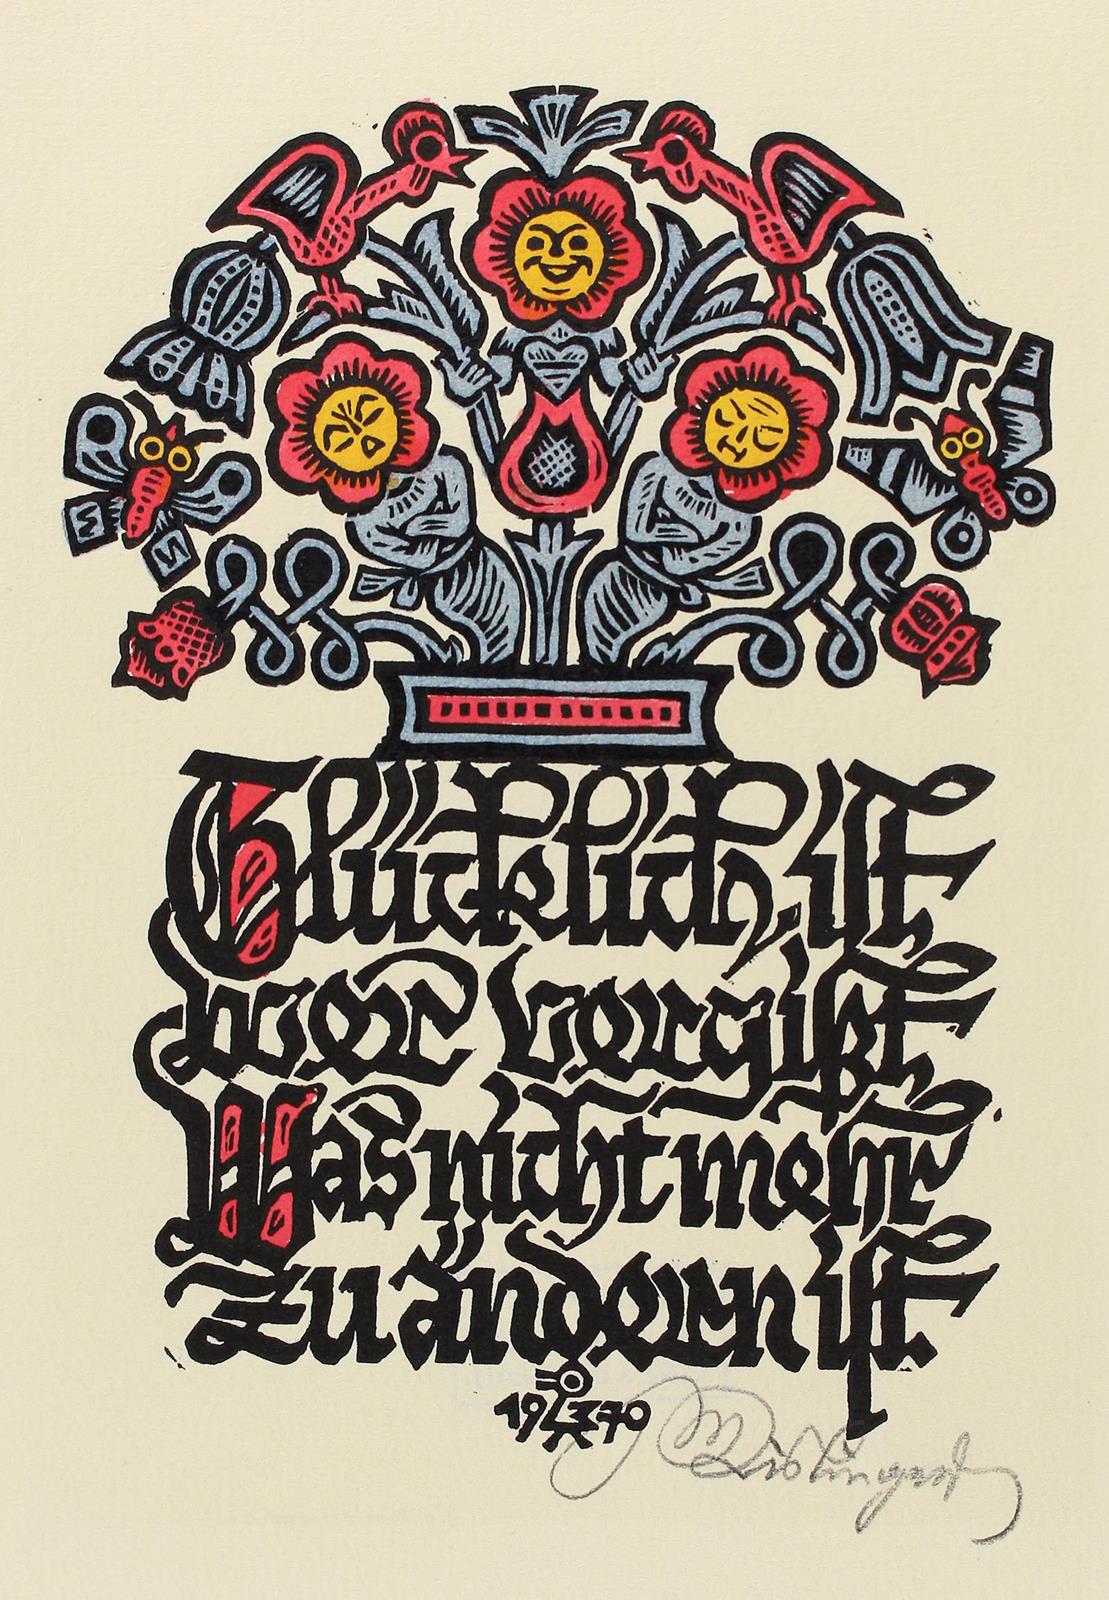 Glücklich ist
wer vergißt
Was nicht mehr
Zu ändern ist.
1970